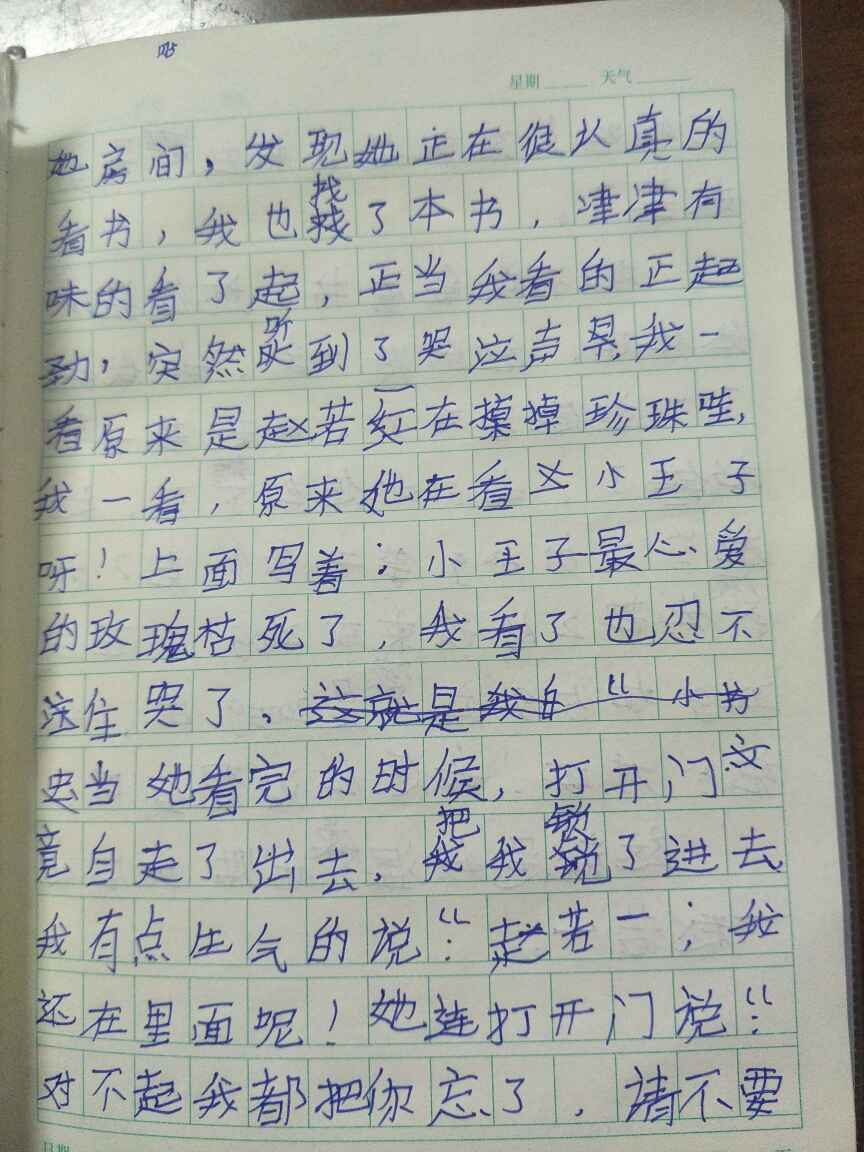 贴
星期 天气
她房间，发现她正在很认真的
看书，我也找了本书，津津有
味的看了起，正当我看的正起
劲，突然听到了哭泣声，我一
看原来是赵若一在掉珍珠哇，
我一看，原来她在看小王子
呀！上面写着：小王子最心爱
的玫瑰枯死了，我看了也忍不
住哭了，这就是我自“小书
虫当她看完的时候，打开门
竟自走了出去，把我锁了进去
我有点生气的说：“赵若一；我
还在里面呢！她连打开门说：“
对不起我都把你忘了，请不要
日期